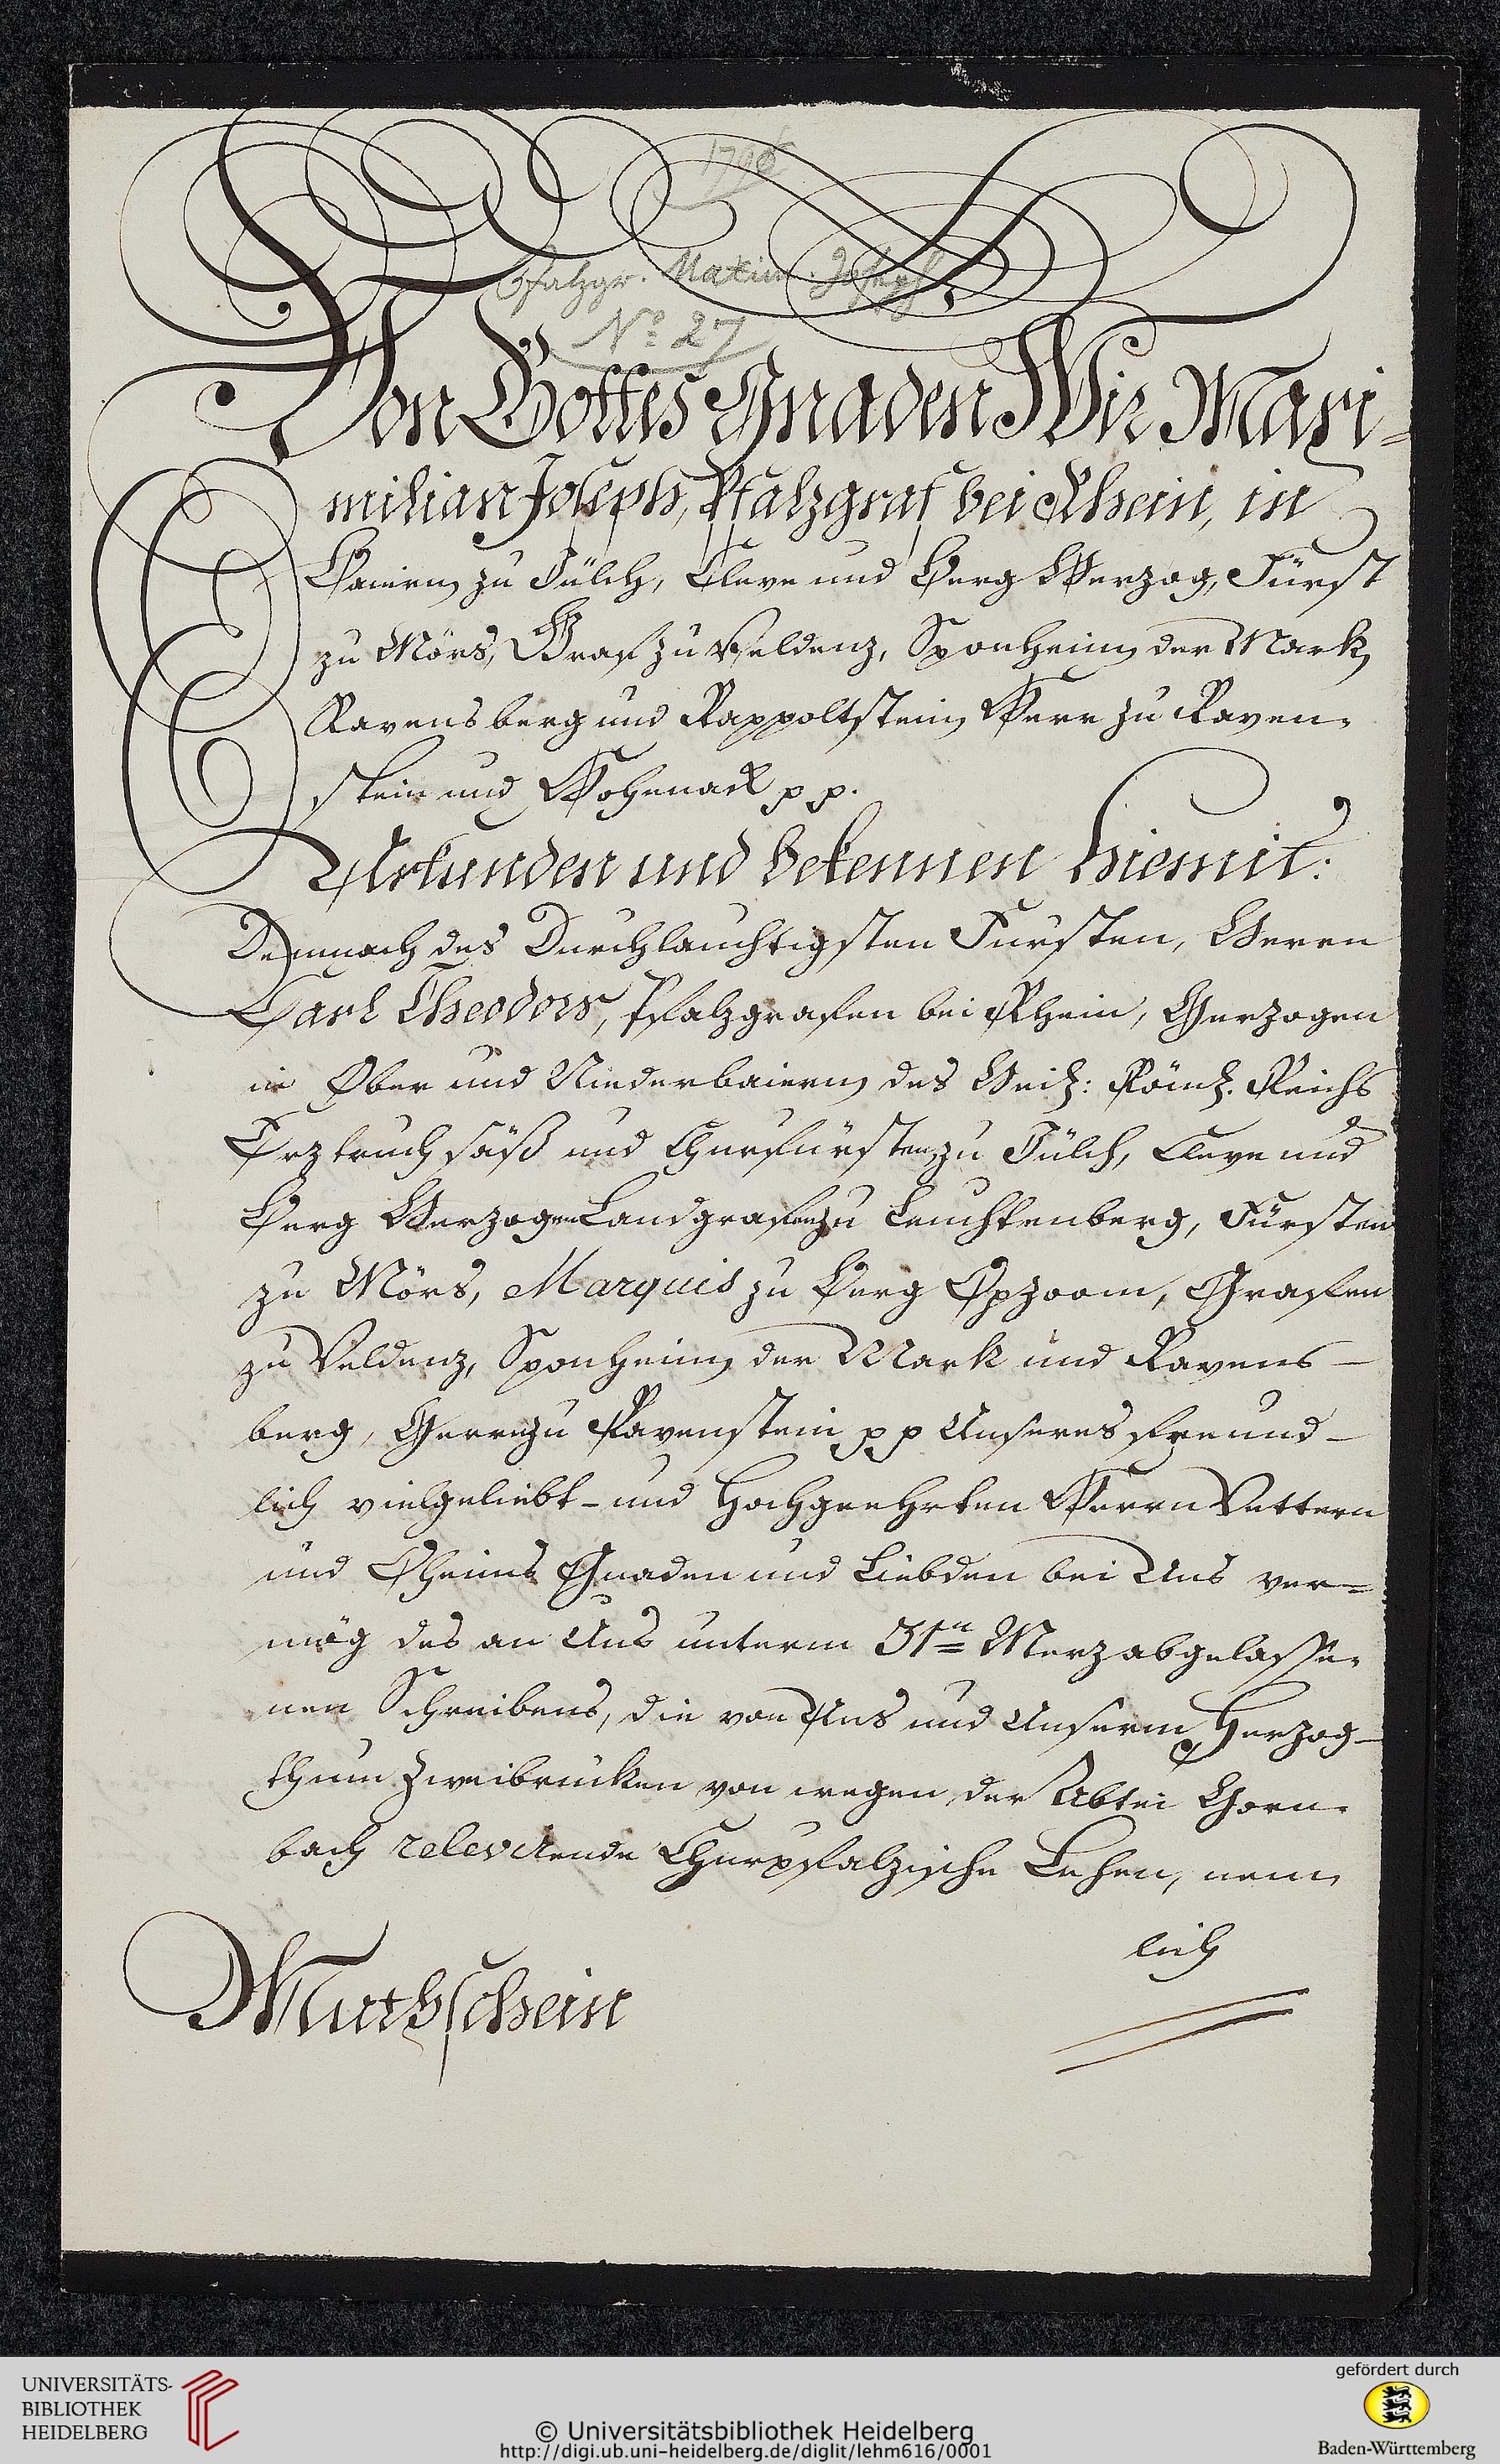 1796
Pfalzgr. Maxim. Joseph
No. 27
Von Gottes Gnaden Wir Maxi=
milian Joseph, Pfalzgraf bei Rhein, in
Baiern zu Jülch, Cleve und Berg Herzog, Fürst
zu Mörs, Graf zu Veldenz, Sponheim der Mark
Ravensberg und Rappoltstein Herr zu Raven-
stein und Hohenack p p.
Urkunden und bekennen hiemit:
Demnach des Durchlauchtigsten Fürsten, Herrn
Carl Theodors, Pfalzgrafen bei Rhein, Herzogen
in Ober und Niederbaiern des Heil: Römch. Reichs
Erztruchsäß und Churfürsten zu Jülch, Cleve und
Berg Herzogen Landgrafen zu Leuchtenberg, Fürsten
zu Mörs, Marquis zu Berg Opzoom, Grafen
zu Veldenz, Sponheim der Mark und Ravens-
berg, Herrn zu Ravenstein p p Unseres freund-
lich vielgeliebt- und Hochgeehrten Herrn Vettern
und Oheims Gnaden und Liebden bei Uns ver=
mög des an Uns unterm 31ten Merz abgelasse-
nen Schreibens, die von Uns und Unserm Herzog-
thum Zweibrücken von wegen der Abtei Horn-
bach relevirende Churpfalzische Lehen, nem
lich
Muthschein
UNIVERSITÄTS-
BIBLIOTHEK
HEIDELBERG
© Universitätsbibliothek Heidelberg
http://digi.ub.uni-heidelberg.de/diglit/lehm616/0001
gefördert durch
Baden-Württemberg